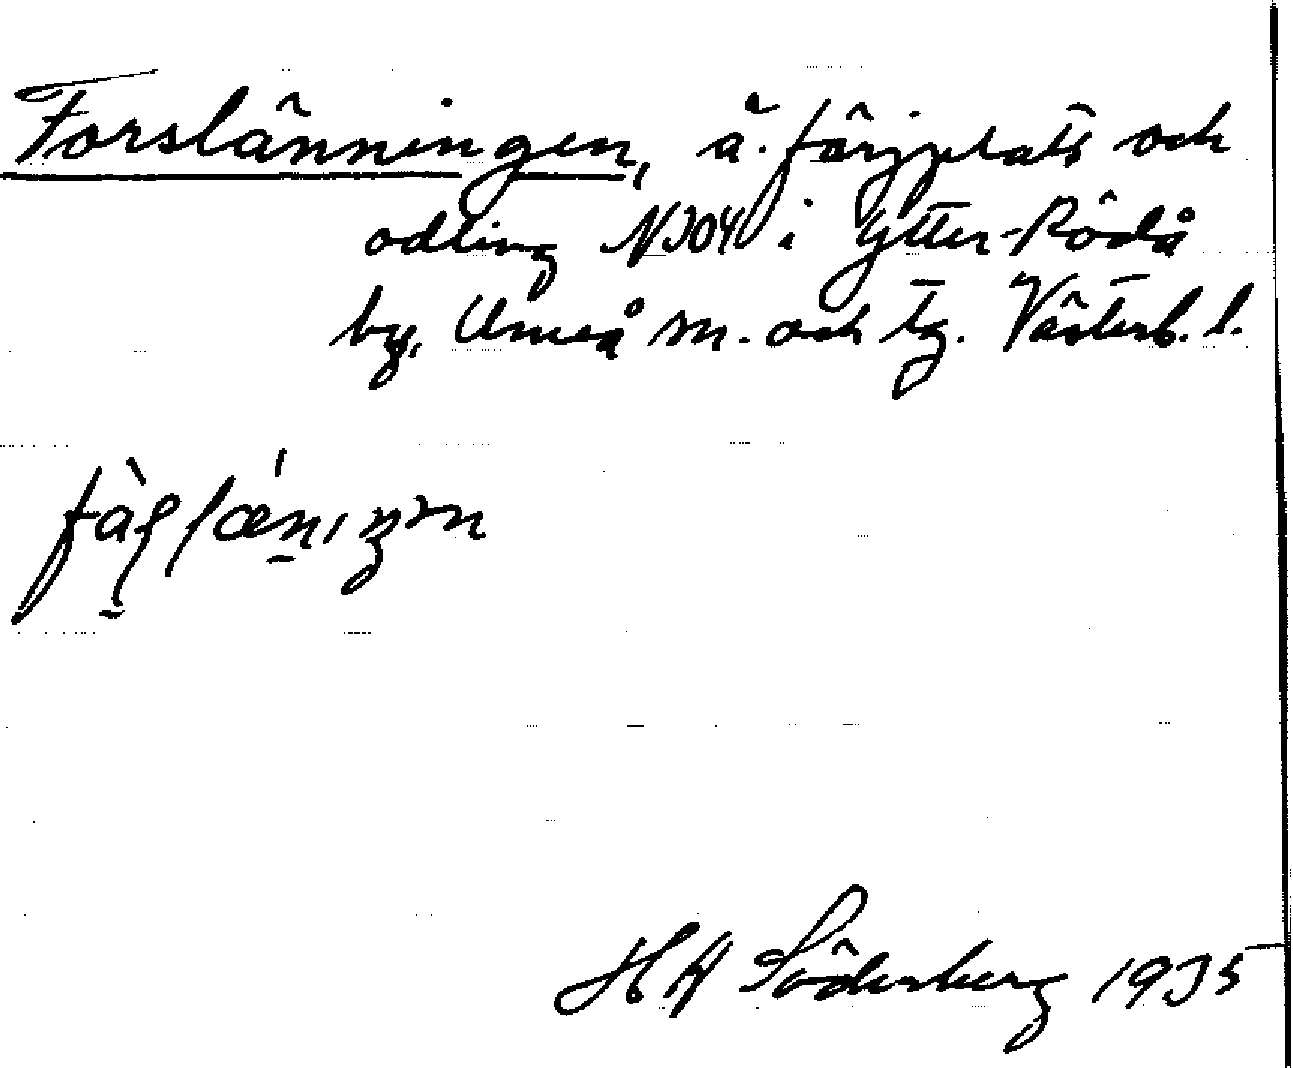 Forslänningen, ä. färjplats och
odling N304 i Ytter-Rödå
by, Umeå sn. och tg. Västerb. l.
H A Söderberg 1935